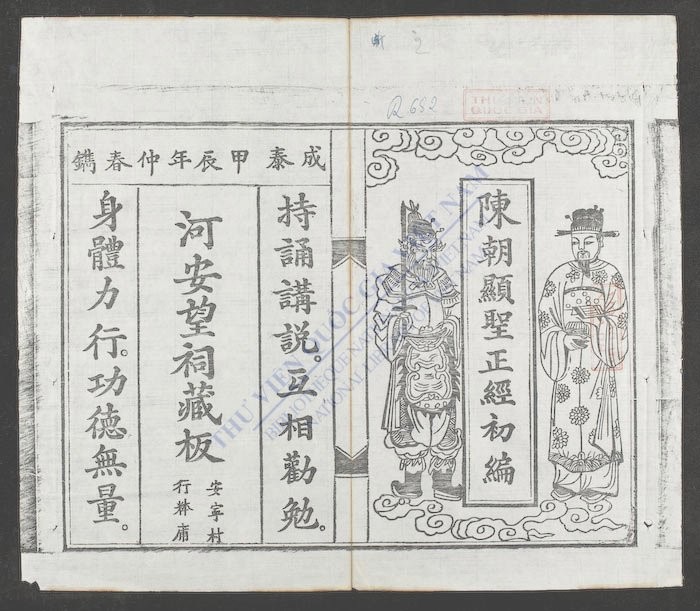 R 652
陳朝顯聖正經初編
成泰甲辰年仲春鐫
持誦講説。互相勸勉。
河安望祠藏板
安寧村
行
身體力行。功德無量。
THƯ VIỆN QUỐC GIA VIỆT NAM
BIBLIOTHEQUE NATIONALE DU VIETNAM
NATIONAL LIBRARY OF VIETNAM
THƯ VIỆN
QUỐC GIA